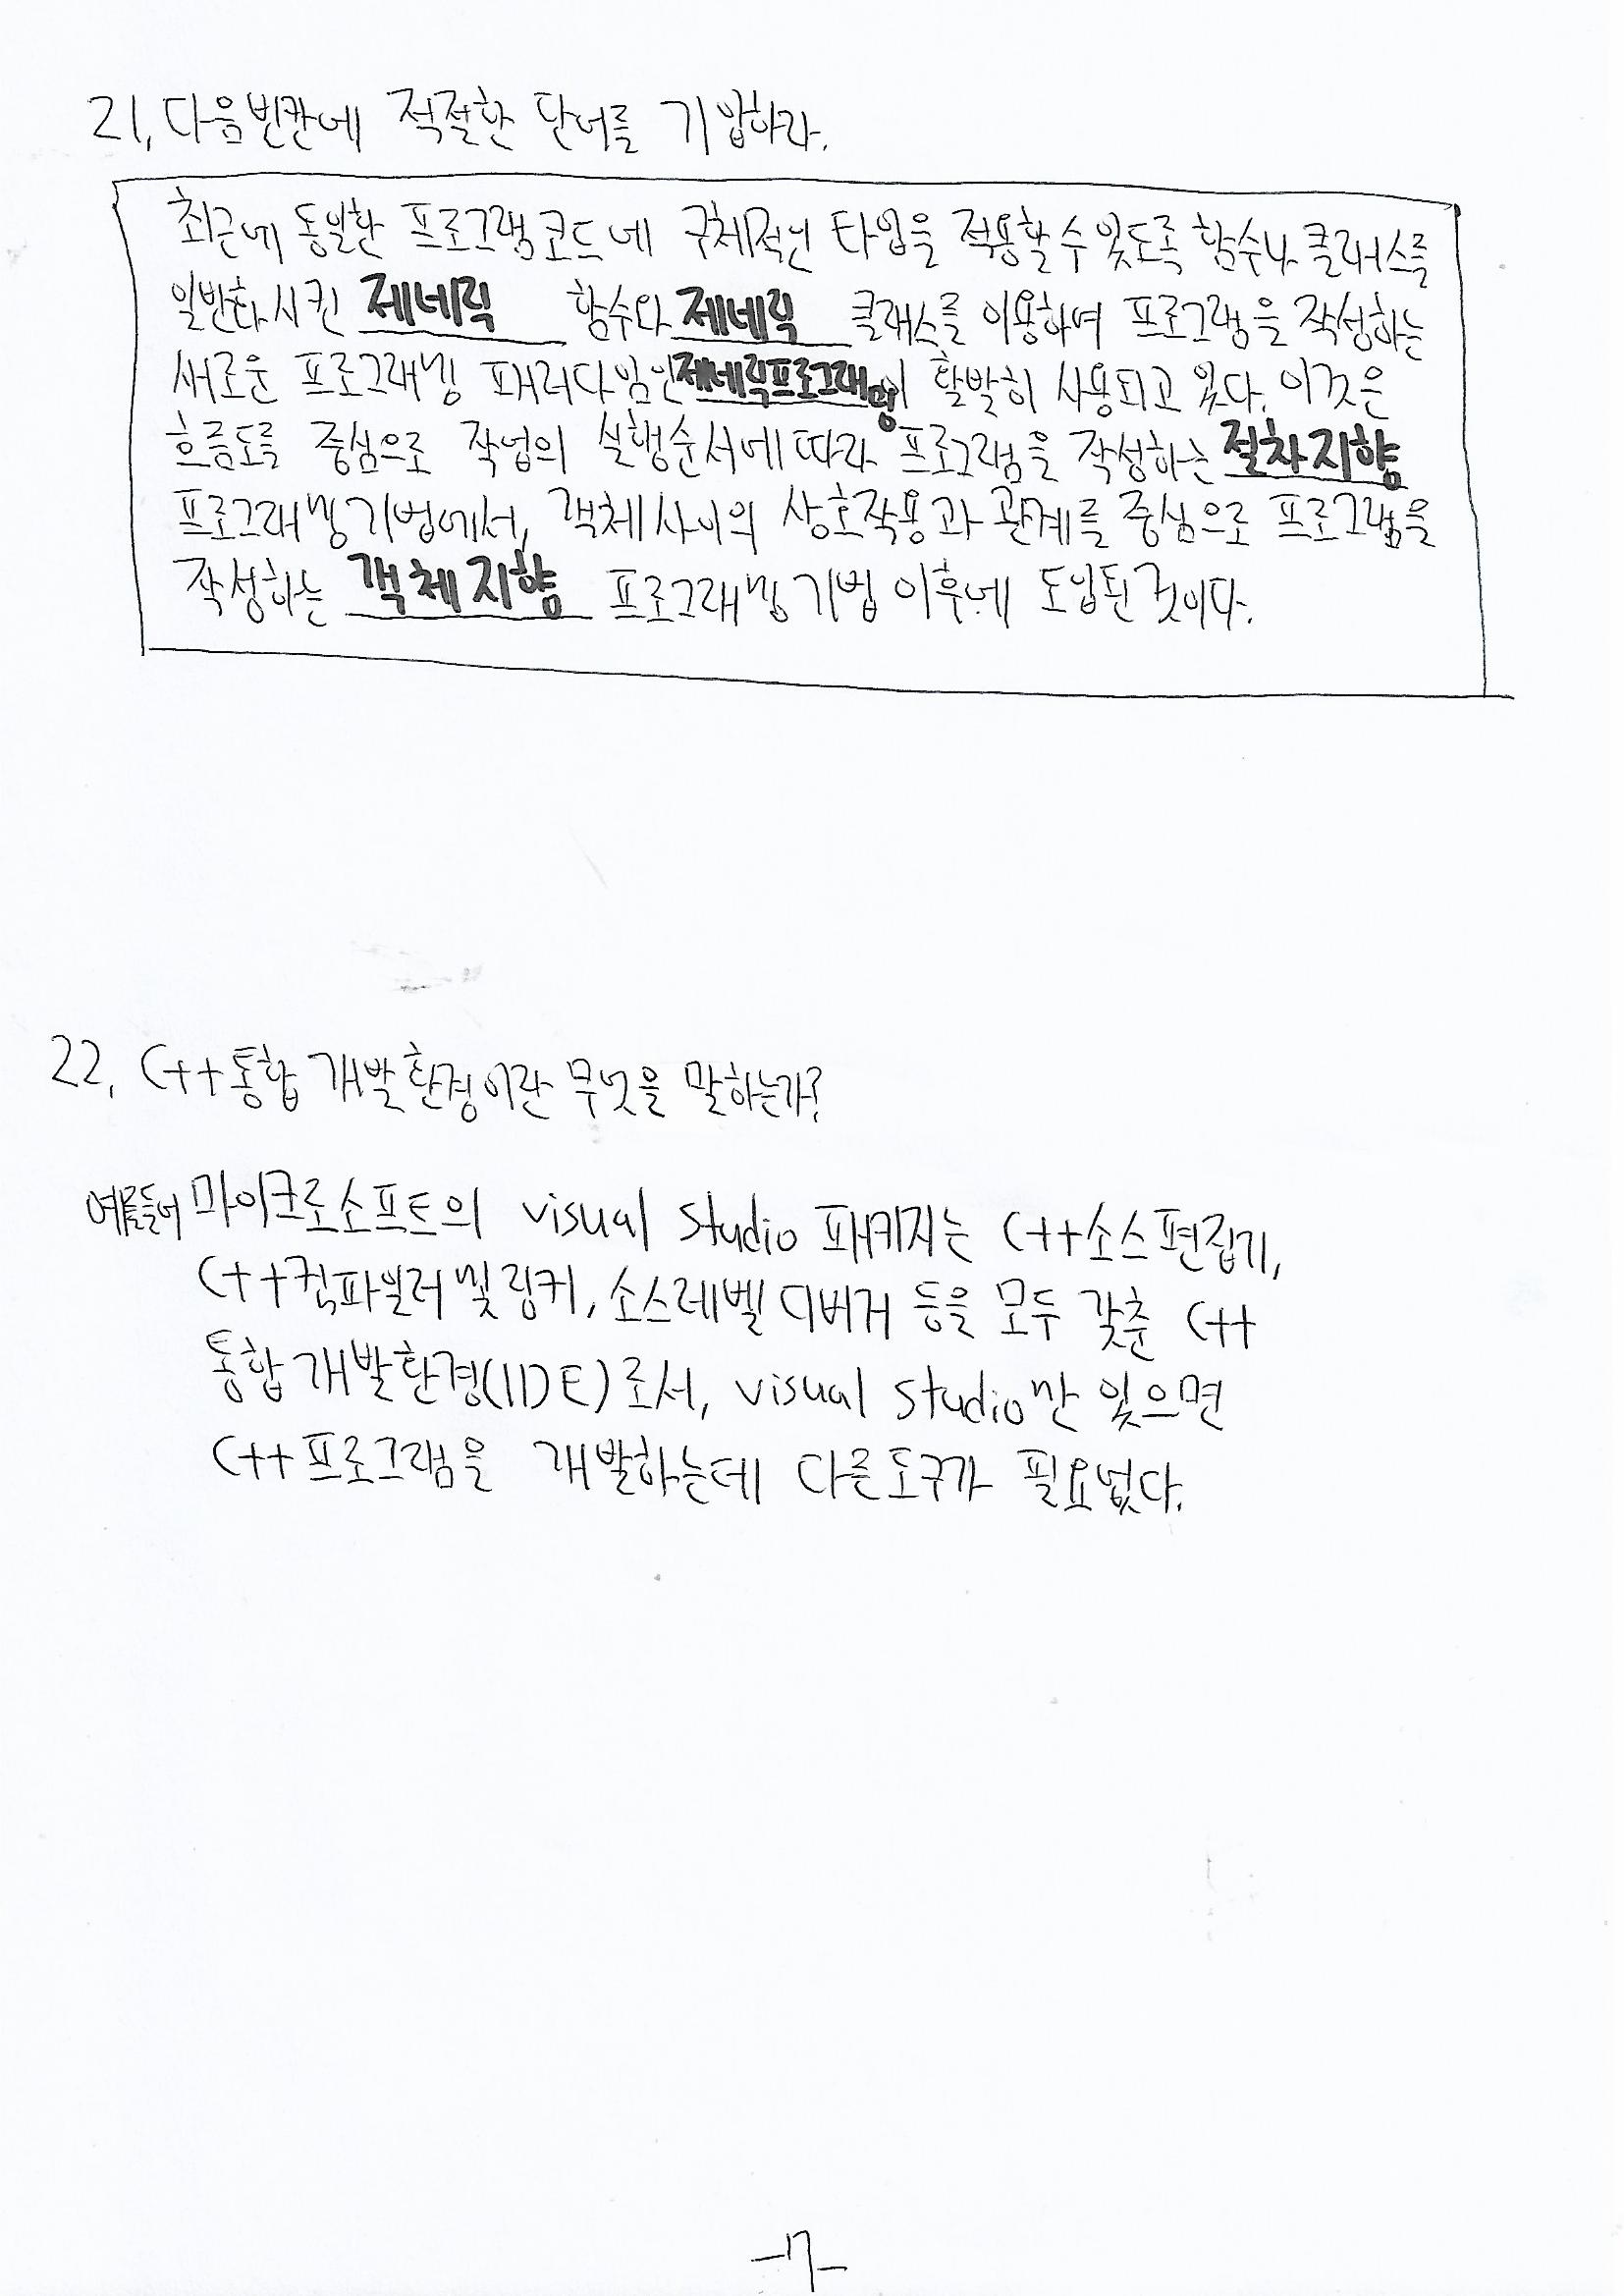 21. 다음빈칸에 적절한 단어를 기입하라.
최근에 동일한 프로그램코드에 구체적인 타입을 적용할수 있도록 함수나 클래스를
일반화시킨 제네릭 함수와 제네릭 클래스를 이용하여 프로그램을 작성하는
새로운 프로그래밍 패러다임인제네릭프로그래밍이 활발히 사용되고 있다. 이것은
흐름도를 중심으로 작업의 실행순서에따라 프로그램을 작성하는 절차지향
프로그래밍기법에서, 객체사이의 상호작용과 관계를 중심으로 프로그램을
작성하는 객체지향 프로그래밍기법 이후에 도입된것이다.
22. C++통합개발환경이란 무엇을 말하는가?
예를들어 마이크로소프트의 visual studio 패키지는 C++소스편집기,
C++컴파일러및링커, 소스레벨 디버거 등을 모두 갖춘 C++
통합개발환경(IDE)로서, visual studio만 있으면
C++프로그램을 개발하는데 다른도구가 필요없다.
-17-